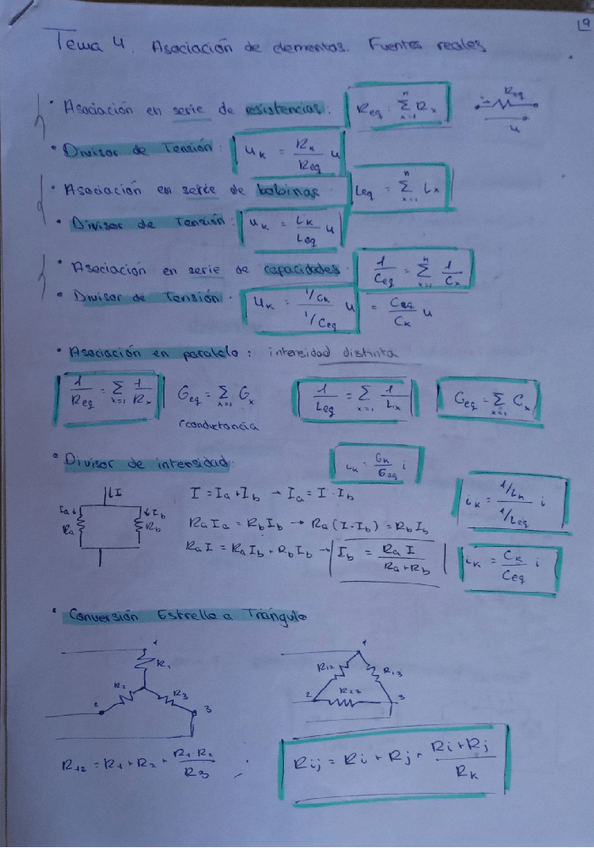 19
Tema 4. Asociación de elementos. Fuentes reales
• Asociación en serie de resistencias: Req = Σ(x=1..n) Rx
i Req u
• Divisor de Tensión: uk = Rk/Req u
• Asociación en serie de bobinas Leq = Σ(x=1..n) Lx
• Divisor de Tensión: uk = Lk/Leq u
• Asociación en serie de capacidades: 1/Ceq = Σ(x=1..n) 1/Cx
• Divisor de Tensión. uk = (1/Ck)/(1/Ceq) u = Ceq/Ck u
• Asociación en paralelo: intensidad distinta
1/Req = Σ(x=1) 1/Rx Geq = Σ(x=1) Gx 1/Leq = Σ(x=1) 1/Lx Ceq = Σ(x=1) Cx
conductancia
• Divisor de intensidad: ik = Gk/Geq i
I Ia Ra Ib Rb
I = Ia + Ib → Ia = I - Ib
ik = (1/Lk)/(1/Leq) i
Ra Ia = Rb Ib → Ra (I - Ib) = Rb Ib
Ra I = Ra Ib + Rb Ib → Ib = Ra I/(Ra + Rb)
ik = Ck/Ceq i
• Conversión Estrella a Triángulo
1 R1 R2 R3 2 3
1 R12 R13 R23 2 3
R12 = R1 + R2 + R1·R2/R3
Rij = Ri + Rj + (Ri+Rj)/Rk